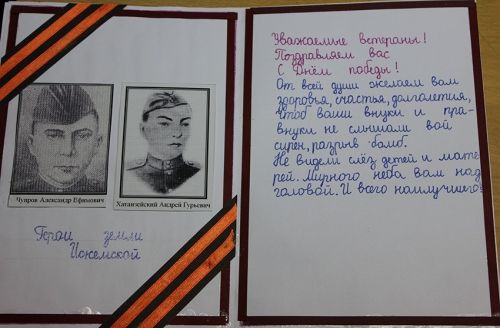 Чупров Александр Ефимович
Хатанзейский Андрей Гурьевич
Герои земли
Ижемской
Уважаемые ветераны!
Поздравляем вас
С Днём победы!
От всей души желаем вам
здоровья, счастья, долголетия,
чтоб ваши внуки и пра-
внуки не слышали вой
сирен, разрыв бомб.
Не видели слёз детей и мате-
рей. Мирного неба вам над
головой. И всего наилучшего!